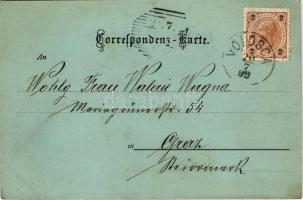 Correspondenz-Karte.
7
VOLOSCA
92
An
Wohlg. Frau Valerie Wagna
Mariengrunerstr. 54
in Graz
Steiermark